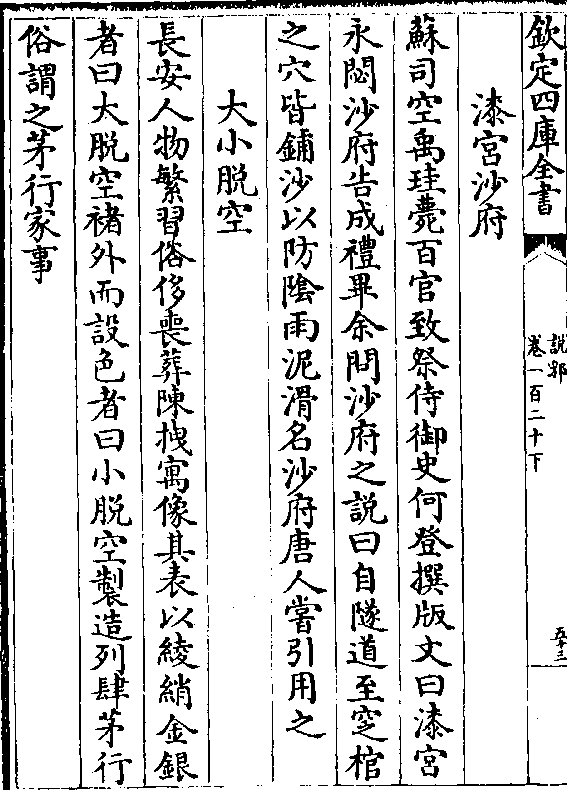 欽定四庫全書
說郛
卷一百二十下
五十三
漆宮沙府
蘇司空禹珪薨百官致祭侍御史何登撰版文曰漆宮
永閟沙府告成禮畢余問沙府之說曰自隧道至窆棺
之穴皆鋪沙以防陰雨泥滑名沙府唐人嘗引用之
大小脱空
長安人物繁習俗侈喪葬陳拽寓像其表以綾綃金銀
者曰大脱空禇外而設色者曰小脱空製造列肆茅行
俗謂之茅行家事